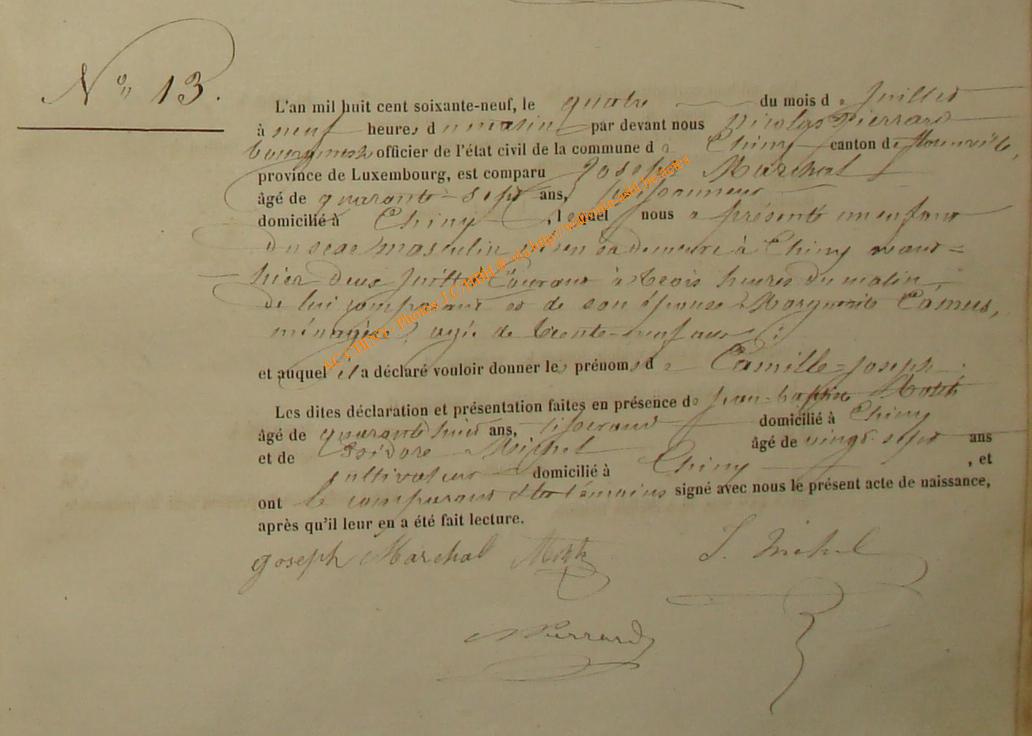 N° 13.
L'an mil huit cent soixante-neuf, le quatre du mois de Juillet
à neuf heures du matin par devant nous Nicolas Pierrard
bourgmestre officier de l'état civil de la commune de Chiny canton de Florenville,
province de Luxembourg, est comparu Joseph Marchal
âgé de quarante-sept ans,
domicilié à Chiny, lequel nous a présenté un enfant
du sexe masculin né en sa demeure à Chiny avant=
hier deux Juillet Courant à trois heures du matin,
de lui comparant et de son épouse Marguerite Camus,
ménagère, agée de trente-neuf ans ;
et auquel il a déclaré vouloir donner les prénoms de Camille=Joseph.
Les dites déclaration et présentation faites en présence de Jean-baptiste
âgé de quarante huit ans, tisserand domicilié à Chiny
et de Isidore Michel âgé de vingt sept ans
cultivateur domicilié à Chiny, et
ont le comparant et les témoins signé avec nous le présent acte de naissance,
après qu'il leur en a été fait lecture.
Joseph Marchal J. Michel
NPierrard